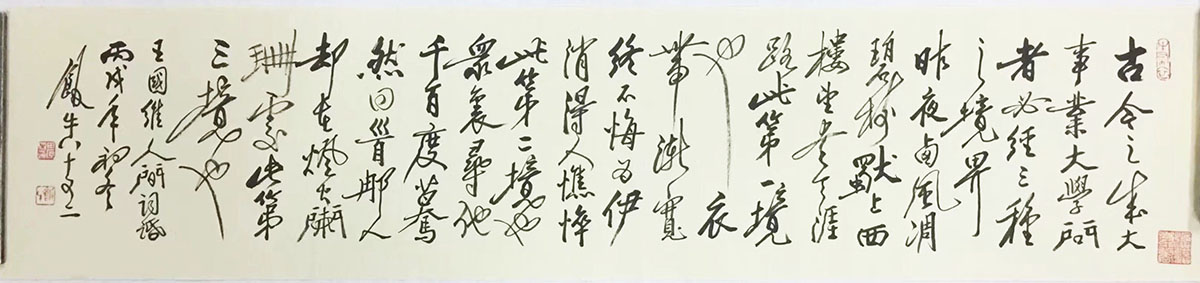 古今之成大
事業大學問
者必經三種
之境界
昨夜西風凋
碧樹獨上西
樓望盡天涯
路此第一境
也 衣
帶漸寬
終不悔為伊
消得人憔悴
此第二境也
眾裏尋他
千百度驀
然回首那人
却在燈火闌
珊處此第
三境也
王國維人間詞話
丙戌年初冬
八十又二